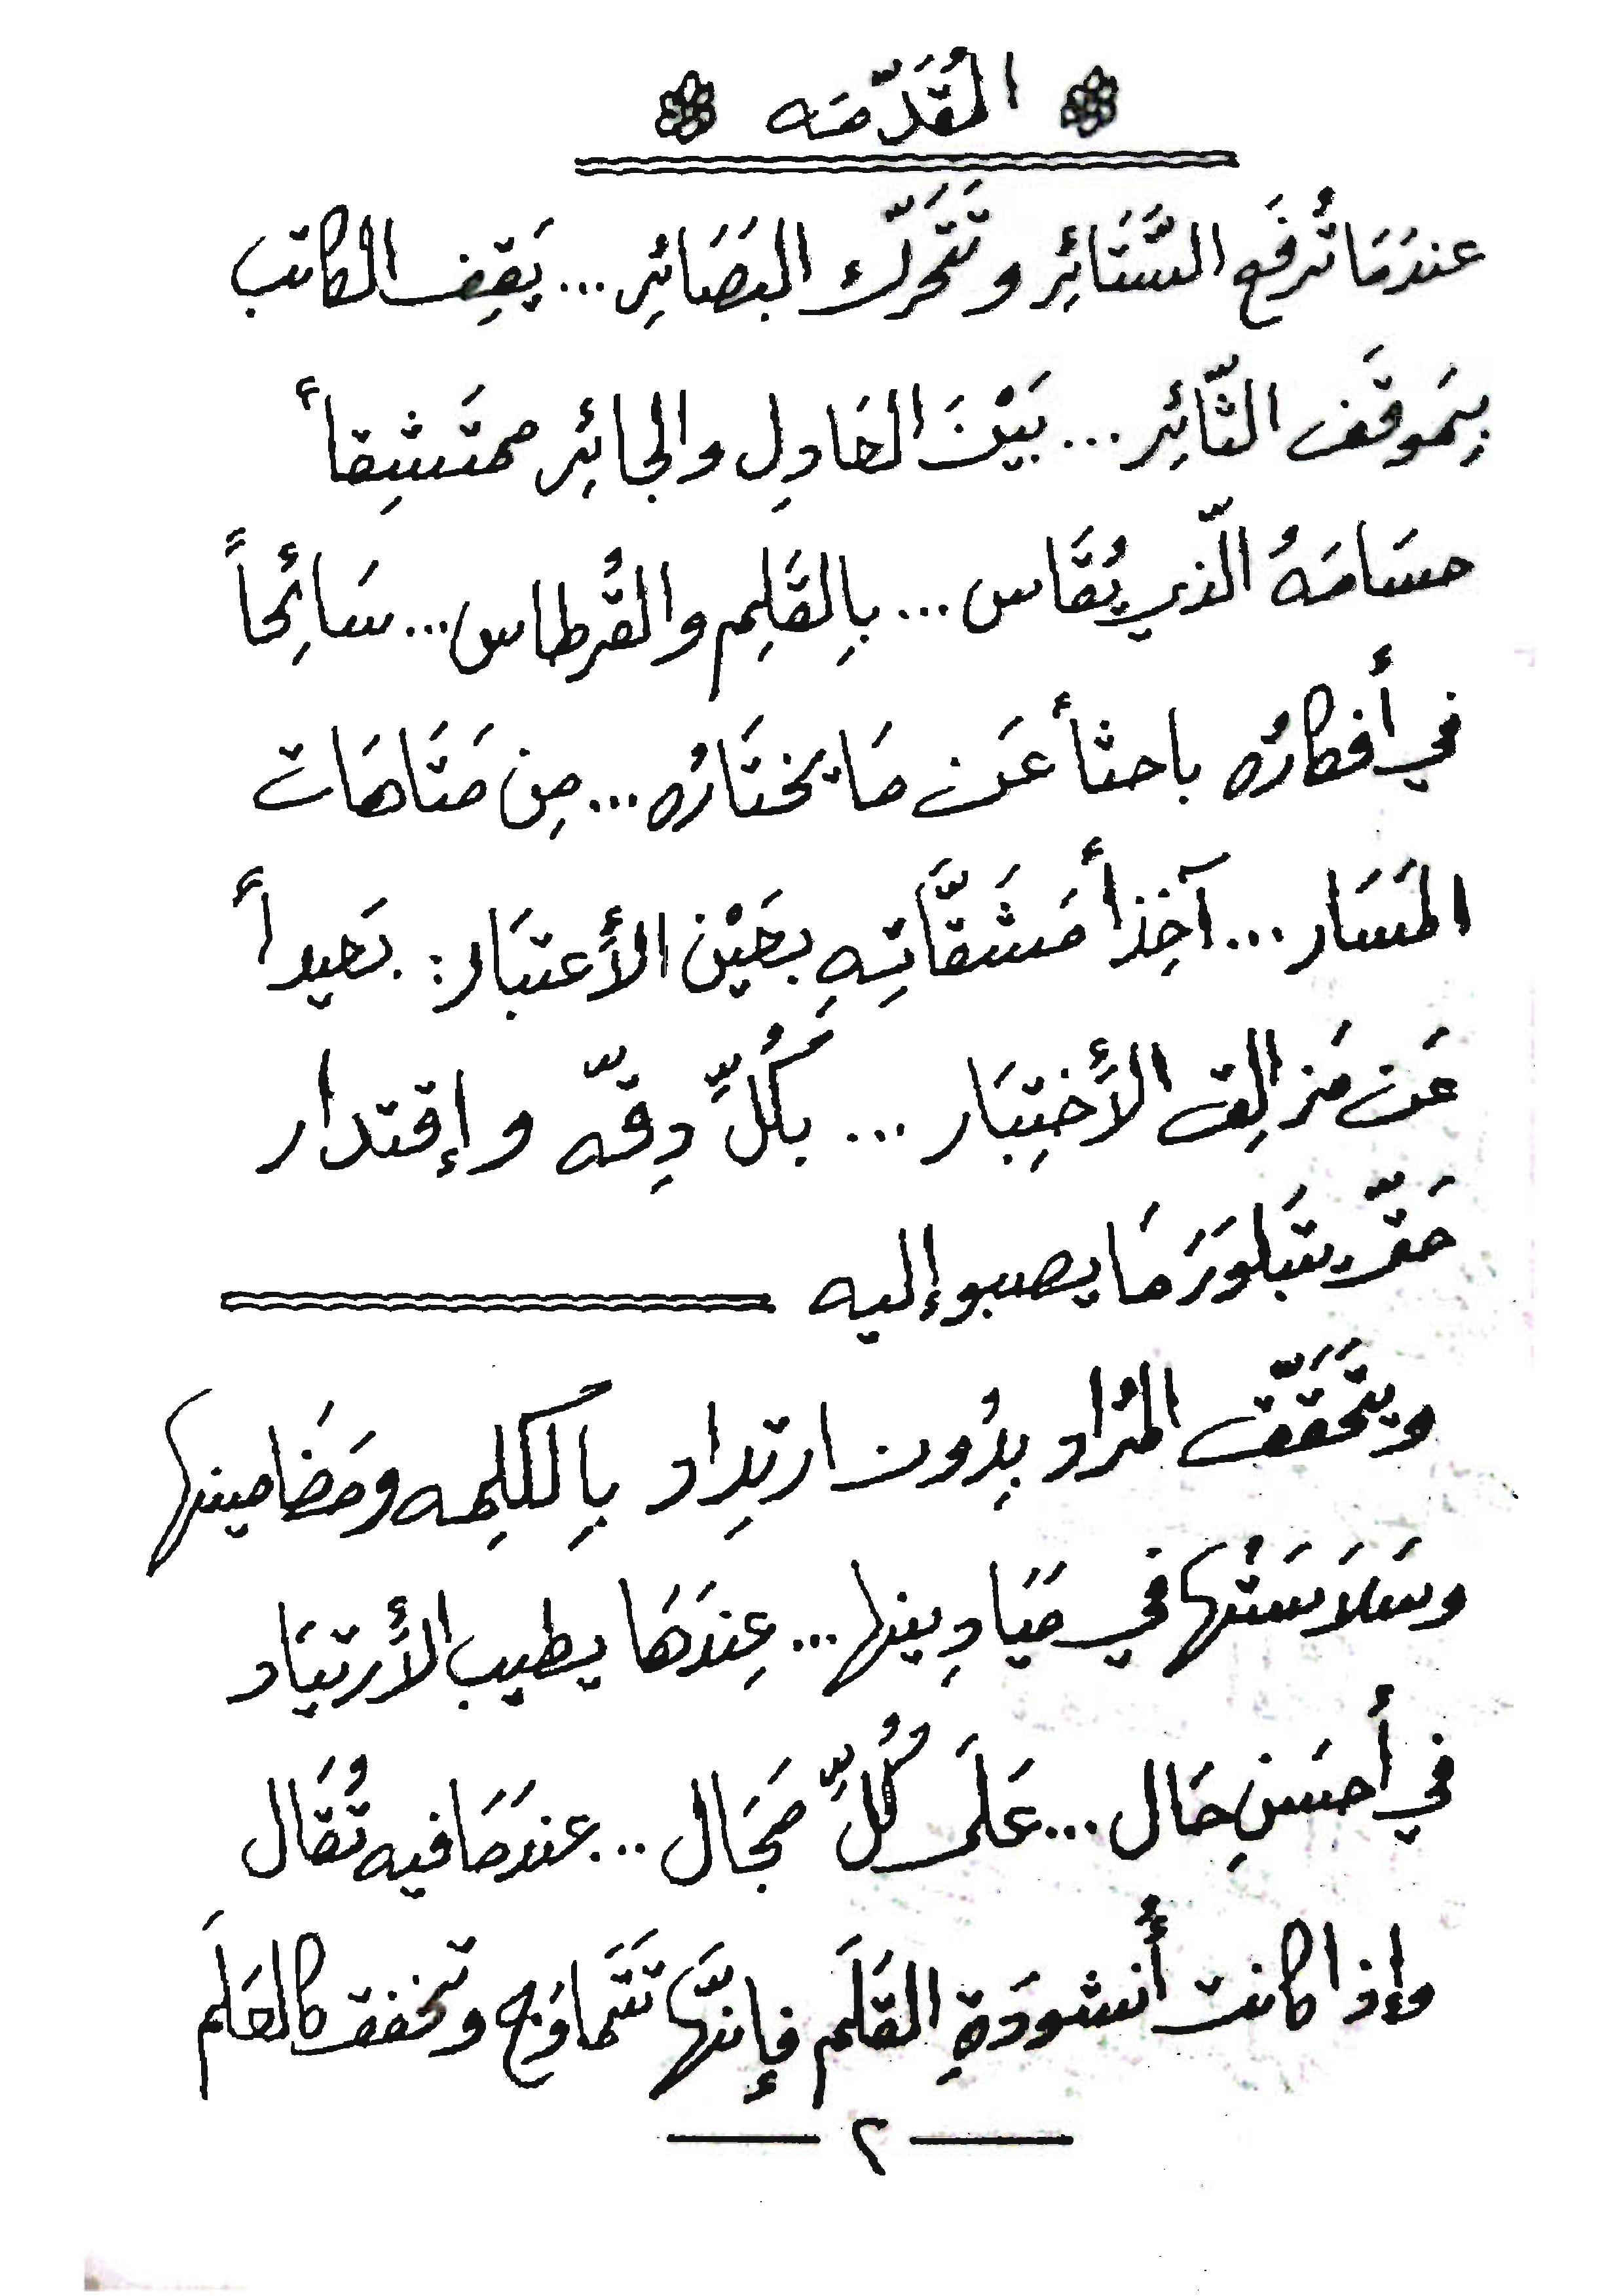 المُقَدّمَه
عندَمَا تُرفَع السَّتَائِر وتَتَحَرّك البَصَائِر ... يَقِف الكاتب
بِمَوقَف الثّائِر ... بَيْنَ العَادِل والجائِر ممتَشِقاً
حسَامَهُ الّذي يُقَاس ... بِالقَلِم والقُرطاس ... سَائِحاً
في أفكارُه باحثاً عَن مَا يختَارُه ... مِن مَتَاهَات
المَسَار ... آخِذاً مَشَقَّاتِهِ بعَيْن الأَعتبَار : بَعيداً
عَن مَزالِق الأَختِبَار ... بكُلِّ دِقّه وإقتدار
حَتّى يتَبلوَرَ مَا يصبو إليه
ويتَحَقّق المُراد بِدُون ارتِداد بِالكلِمه ومَضَامينها
وسَلاَسَتُها في مَيَادِينها ... عِندَهَا يطيب الأَرتيَاد
في أَحسَنِ حَال ... عَلَى كُلِّ مَجَال ... عندَمَا فيه تُقَال
وإذا كانت أُنشودَةِ القَلَم فإنّها تَتَماوَج وتخفق كالعَلَمَ
٢